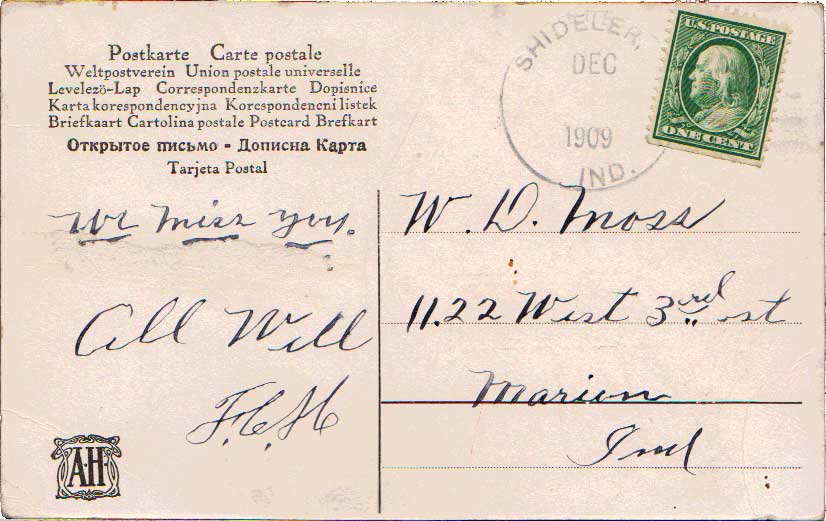 Postkarte Carte postale
Weltpostverein Union postale universelle
Levelezö-Lap Correspondenzkarte Dopisnice
Karta korespondencyjna Korespondencni listek
Briefkaart Cartolina postale Postcard Brefkart
Открытое письмо - Дописна Карта
Tarjeta Postal
SHIDELER,
DEC
1909
IND.
U.S. POSTAGE
ONE CENT
We miss you.
All Well
F.C.H
W. D. Moss
1122 West 3rd st
Marion
Ind
A·H·